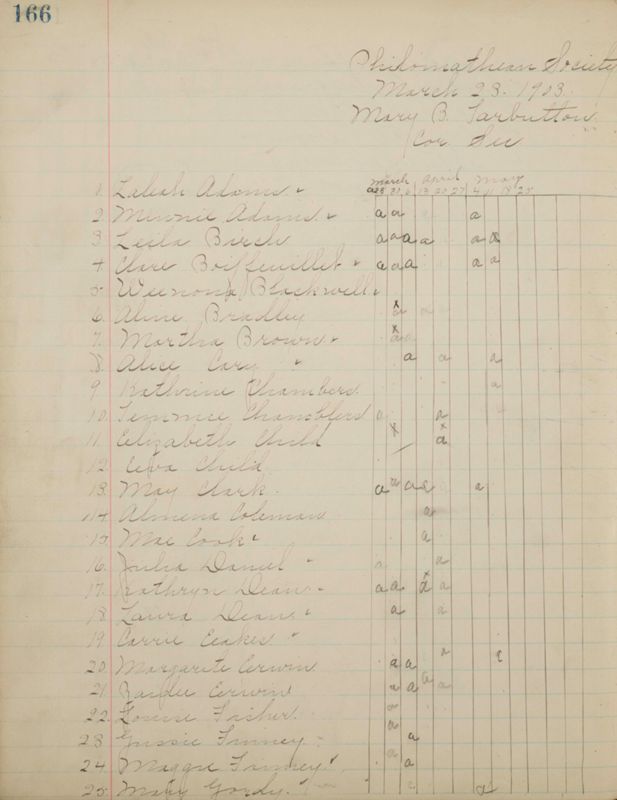 166
Philomathean Society
March 23. 1903
Mary B. Tarbutton
Cor Sec
March April May
23 30 6 13 20 27 4 11 18 25
1. Adams
2. Minnie Adams a a a
3. Leila Birch a a a a a a
4. Clare Boiffeuillet a a a a a
5. Weenona Blackwell
6. Aline Bradley
7. Martha Brown
8. Alice Cary a a a
9. Kathrine Chambers a
10. Chamblers a a
11. Elizabeth Child x x a
12. Child
13. May Clark a a a a a
14. Almena Coleman a
15. Mae Cook a
16. Julia Daniel a a
17. Kathryn Dean a a x a a
18. Laura Dean a a
19. Carrie Eakes
20. Margarete Erwin a a
21. Erwin a a a
22. Louise Fisher
23. Gussie Finney a
24. Maggie Finney a a
25. Mary Gordy a